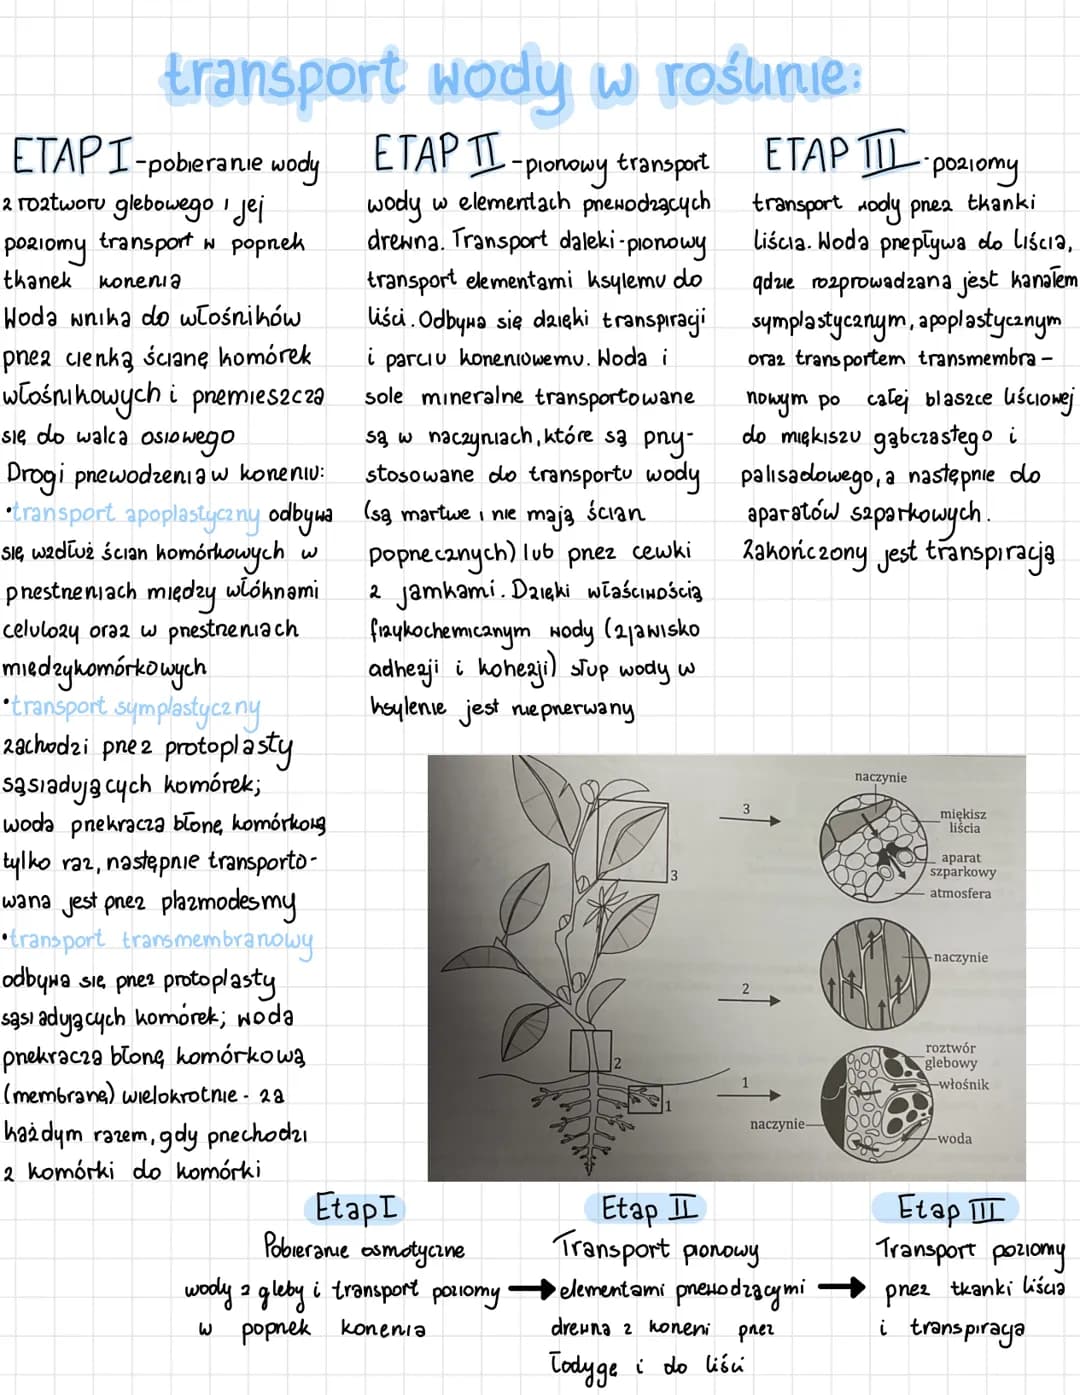 transport wody w roślinie:
ETAP I -pobieranie wody
z roztworu glebowego i jej
poziomy transport w poprzek
tkanek korzenia
Woda wnika do włośników
przez cienką ścianę komórek
włośnikowych i przemieszcza
się do walca osiowego
Drogi przewodzenia w korzeniu:
•transport apoplastyczny odbywa
się wzdłuż ścian komórkowych w
przestrzeniach między włóknami
celulozy oraz w przestrzeniach
międzykomórkowych
•transport symplastyczny
zachodzi przez protoplasty
sąsiadujących komórek;
woda przekracza błonę komórkową
tylko raz, następnie transporto-
wana jest przez plazmodesmy
•transport transmembranowy
odbywa się przez protoplasty
sąsiadyjących komórek; woda
przekracza błonę komórkową
(membranę) wielokrotnie - za
każdym razem, gdy przechodzi
z komórki do komórki
ETAP II -pionowy transport
wody w elementach przewodzących
drewna. Transport daleki-pionowy
transport elementami ksylemu do
liści. Odbywa się dzięki transpiracji
i parciu korzeniowemu. Woda i
sole mineralne transportowane
są w naczyniach, które są przy-
stosowane do transportu wody
(są martwe i nie mają ścian
poprzecznych) lub przez cewki
z jamkami. Dzięki właściwością
fizykochemicznym wody (zjawisko
adhezji i kohezji) słup wody w
ksylenie jest nieprzerwany
ETAP III -poziomy
transport wody przez tkanki
liścia. Woda przepływa do liścia,
gdzie rozprowadzana jest kanałem
symplastycznym, apoplastycznym
oraz transportem transmembra-
nowym po całej blaszce liściowej
do miękiszu gąbczastego i
palisadowego, a następnie do
aparatów szparkowych.
Zakończony jest transpiracją
3
2
1
3
2
1
naczynie
miękisz
liścia
aparat
szparkowy
atmosfera
naczynie
roztwór
glebowy
włośnik
naczynie
woda
Etap I
Pobieranie osmotyczne
wody z gleby i transport poziomy
w poprzek korzenia
Etap II
Transport pionowy
elementami przewodzącymi
drewna z korzeni przez
łodygę i do liści
Etap III
Transport poziomy
przez tkanki liścia
i transpiracja